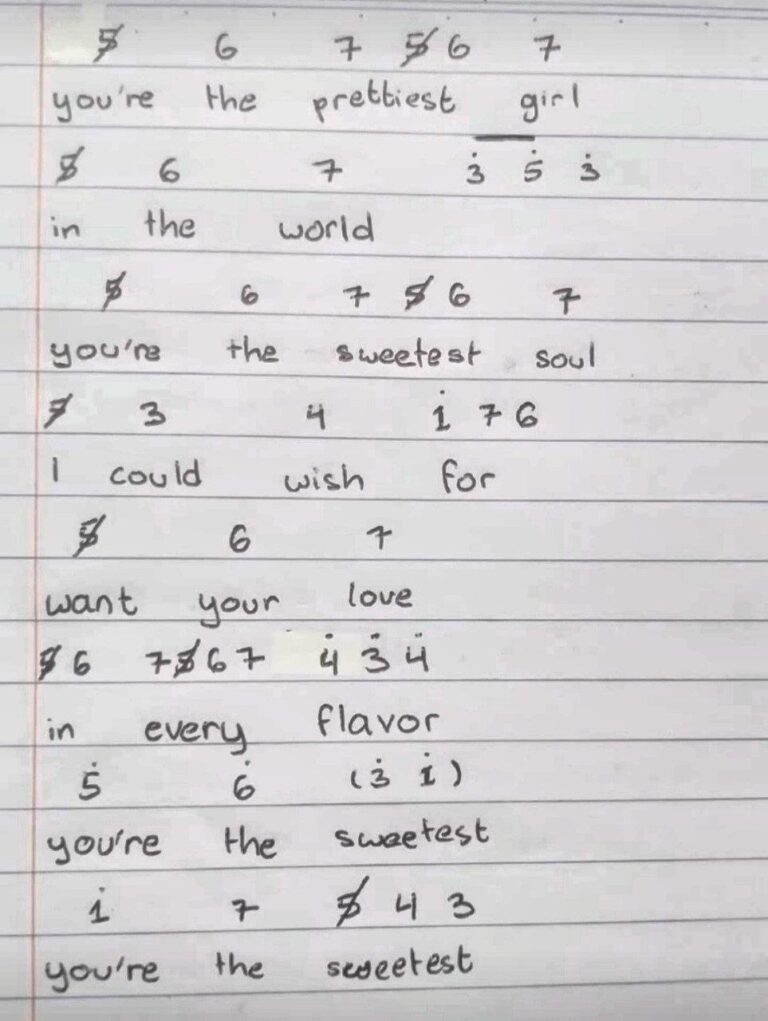 5̸ 6 7 5̸ 6 7
you're the prettiest girl
5̸ 6 7 3̇ 5̇ 3̇
in the world
5̸ 6 7 5̸ 6 7
you're the sweetest soul
7̸ 3 4 1̇ 7 6
I could wish for
5̸ 6 7
want your love
5̸ 6 7 5̸ 6 7 4̇ 3̇ 4̇
in every flavor
5̇ 6̇ (3̇ 1̇)
you're the sweetest
1̇ 7 5̸ 4 3
you're the sweetest